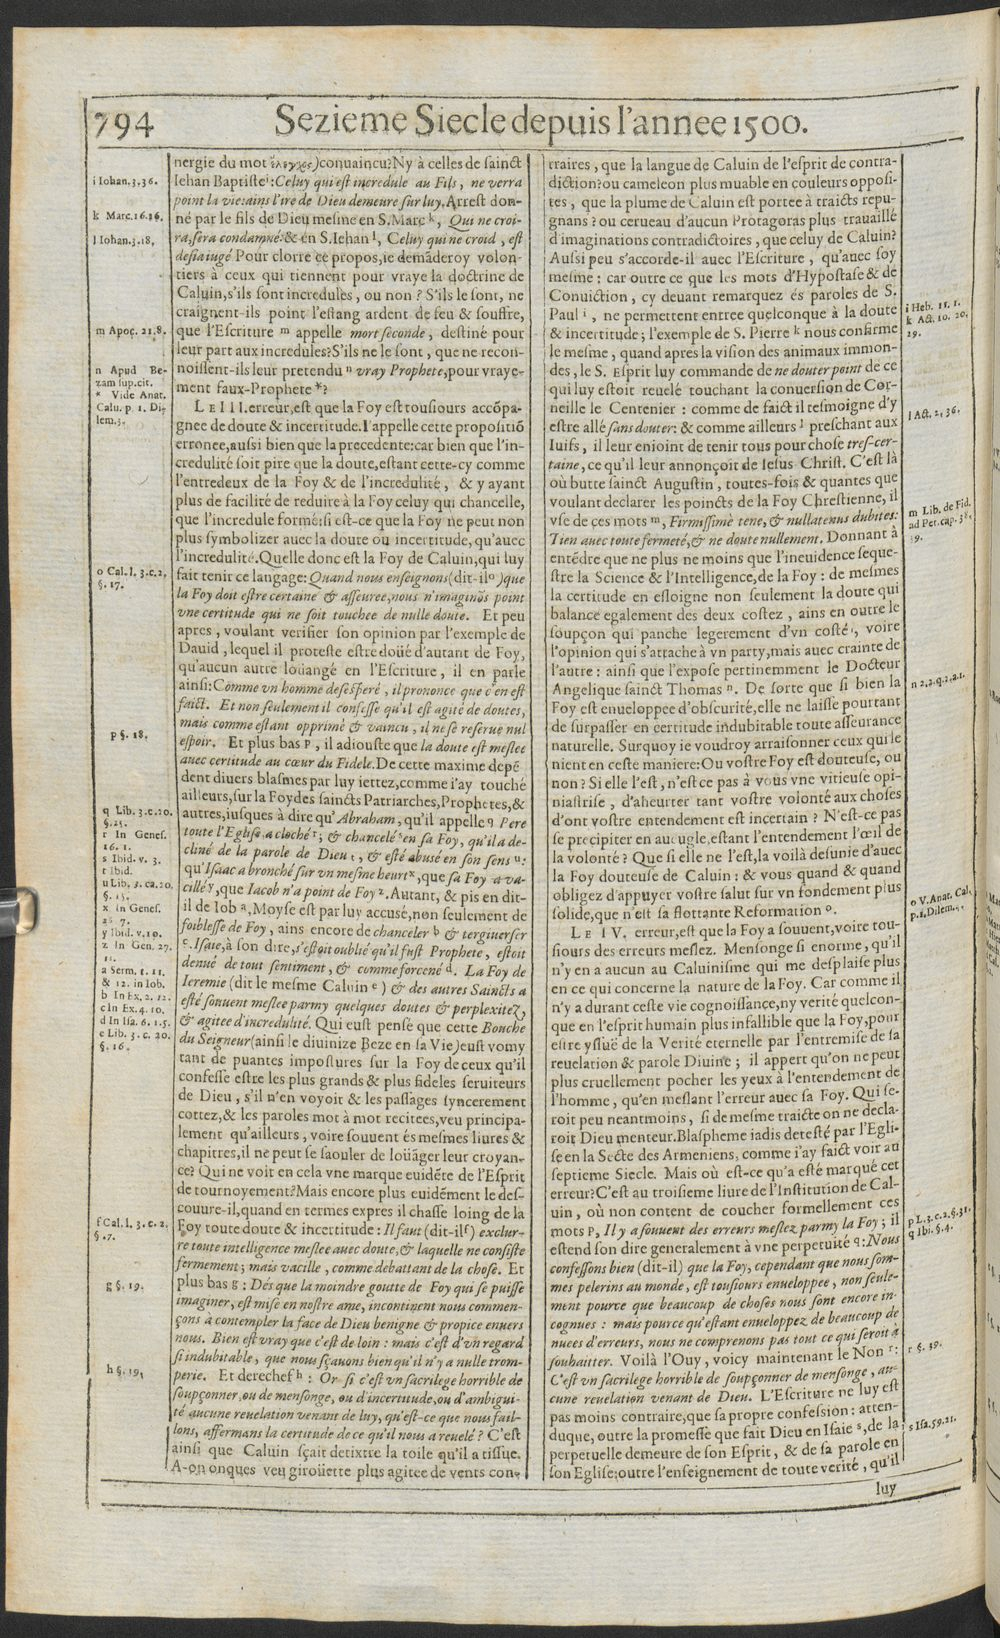 794
Sezieme Siecle depuis l'annee 1500.
nergie du mot ἔλεγχος) conuaincu? Ny à celles de sainct
Iehan Baptiste i: Celuy qui est incredule au Fils, ne verra
point la vie: ains l'ire de Dieu demeure sur luy. Arrest don-
né par le fils de Dieu mesme en S. Marc k, Qui ne croi-
ra, sera condamné: & en S. Iehan l, Celuy qui ne croid, est
desia iugé Pour clorre ce propos, ie demãderoy volon-
tiers à ceux qui tiennent pour vraye la doctrine de
Caluin, s'ils sont incredules, ou non? S'ils le sont, ne
craignent-ils point l'estang ardent de feu & souffre,
que l'Escriture m appelle mort seconde, destiné pour
leur part aux incredules? S'ils ne le sont, que ne recon-
noissent-ils leur pretendu n vray Prophete, pour vraye-
ment faux-Prophete *?
LE III. erreur, est que la Foy est tousiours accõpa-
gnee de doute & incertitude. I'appelle cette propositiõ
erronee, aussi bien que la precedente: car bien que l'in-
credulité soit pire que la doute, estant cette-cy comme
l'entredeux de la Foy & de l'incredulité, & y ayant
plus de facilité de reduire à la Foy celuy qui chancelle,
que l'incredule formé: si est-ce que la Foy ne peut non
plus symbolizer auec la doute ou incertitude, qu'auec
l'incredulité. Quelle donc est la Foy de Caluin, qui luy
fait tenir ce langage: Quand nous enseignons (dit-il o) que
la Foy doit estre certaine & asseuree, nous n'imaginõs point
vne certitude qui ne soit touchee de nulle doute. Et peu
apres, voulant verifier son opinion par l'exemple de
Dauid, lequel il proteste estre doüé d'autant de Foy,
qu'aucun autre loüangé en l'Escriture, il en parle
ainsi: Comme vn homme desesperé, il prononce que c'en est
faict. Et non seulement il confesse qu'il est agité de doutes,
mais comme estant opprimé & vaincu, il ne se reserue nul
espoir. Et plus bas p, il adiouste que la doute est meslee
auec certitude au cœur du Fidele. De cette maxime depẽ
dent diuers blasmes par luy iettez, comme i'ay touché
ailleurs, sur la Foy des saincts Patriarches, Prophetes, &
autres, iusques à dire qu'Abraham, qu'il appelle q Pere
toute l'Eglise a cloché r; & chancelé s en sa Foy, qu'il a de-
cliné de la parole de Dieu t, & esté abusé en son sens u:
qu'Isaac a bronché sur vn mesme heurt x, que sa Foy a va-
cillé y, que Iacob n'a point de Foy z. Autant, & pis en dit-
il de Iob a, Moyse est par luy accusé, non seulement de
foiblesse de Foy, ains encore de chanceler b & tergiuerser
c. Isaie, à son dire, s'estoit oublié qu'il fust Prophete, estoit
denué de tout sentiment, & comme forcené d. La Foy de
Ieremie (dit le mesme Caluin e) & des autres Saincts a
esté souuent meslee parmy quelques doutes & perplexitez,
& agitee d'incredulité. Qui eust pensé que cette Bouche
du Seigneur (ainsi le diuinize Beze en sa Vie) eust vomy
tant de puantes impostures sur la Foy de ceux qu'il
confesse estre les plus grands & plus fideles seruiteurs
de Dieu, s'il n'en voyoit & les passages syncerement
cottez, & les paroles mot à mot recitees, veu principa-
lement qu'ailleurs, voire souuent és mesmes liures &
chapitres, il ne peut se saouler de loüãger leur croyan-
ce? Qui ne voit en cela vne marque euidẽte de l'Esprit
de tournoyement? Mais encore plus euidẽment le des-
couure-il, quand en termes expres il chasse loing de la
Foy toute doute & incertitude: Il faut (dit-il f) exclur-
re toute intelligence meslee auec doute, & laquelle ne consiste
fermement; mais vacille, comme debattant de la chose. Et
plus bas g: Dés que la moindre goutte de Foy qui se puisse
imaginer, est mise en nostre ame, incontinent nous commen-
çons à contempler la face de Dieu benigne & propice enuers
nous. Bien est vray que c'est de loin: mais c'est d'vn regard
si indubitable, que nous sçauons bien qu'il n'y a nulle trom-
perie. Et derechef h: Or si c'est vn sacrilege horrible de
soupçonner, ou de mensonge, ou d'incertitude, ou d'ambigui-
té aucune reuelation venant de luy, qu'est-ce que nous fail-
lons, affermans la certitude de ce qu'il nous a reuelé? C'est
ainsi que Caluin sçait detixtre la toile qu'il a tissue.
A-on onques veu giroüette plus agitee de vents con-
i Iohan. 3. 36.
k Marc. 16. 16.
l Iohan. 3. 18,
m Apoc. 21. 8.
n Apud Be-
zam sup. cit.
* Vide Anat.
Calu. p. 1. Di-
lem. 3.
o Cal. l. 3. c. 2.
§. 17.
p §. 18.
q Lib. 3. c. 20.
§. 25.
r In Genes.
16. 1.
s Ibid. v. 3.
t Ibid.
u Lib, 3. ca. 20.
§. 15.
x in Genes.
26. 7.
y Ibid. v. 10.
z In Gen. 27.
11.
a Serm. 1. 11.
& 12. in Iob.
b In Ex. 2. 12.
c In Ex. 4. 10.
d In Isa. 6. 1. 5.
e Lib. 3. c. 20.
§. 16.
f Cal. l. 3. c. 2.
§. 7.
g §. 19.
h §. 19,
traires, que la langue de Caluin de l'esprit de contra-
diction? ou cameleon plus muable en couleurs opposi-
tes, que la plume de Caluin est portee à traicts repu-
gnans? ou cerueau d'aucun Protagoras plus trauaillé
d'imaginations contradictoires, que celuy de Caluin?
Aussi peu s'accorde-il auec l'Escriture, qu'auec soy
mesme: car outre ce que les mots d'Hypostase & de
Conuiction, cy deuant remarquez és paroles de S.
Paul i, ne permettent entree quelconque à la doute
& incertitude; l'exemple de S. Pierre k nous confirme
le mesme, quand apres la vision des animaux immon-
des, le S. Esprit luy commande de ne douter point de ce
qui luy estoit reuelé touchant la conuersion de Cor-
neille le Centenier: comme de faict il tesmoigne d'y
estre allé sans douter: & comme ailleurs l preschant aux
Iuifs, il leur enioint de tenir tous pour chose tres-cer-
taine, ce qu'il leur annonçoit de Iesus Christ. C'est là
où butte sainct Augustin, toutes-fois & quantes que
voulant declarer les poincts de la Foy Chrestienne, il
vse de ces mots m, Firmissimè tene, & nullatenus dubites:
Tien auec toute fermeté, & ne doute nullement. Donnant à
entẽdre que ne plus ne moins que l'ineuidence seque-
stre la Science & l'Intelligence, de la Foy: de mesmes
la certitude en esloigne non seulement la doute qui
balance egalement des deux costez, ains en outre le
soupçon qui panche legerement d'vn costé, voire
l'opinion qui s'attache à vn party, mais auec crainte de
l'autre: ainsi que l'expose pertinemment le Docteur
Angelique sainct Thomas n. De sorte que si bien la
Foy est enueloppee d'obscurité, elle ne laisse pourtant
de surpasser en certitude indubitable toute asseurance
naturelle. Surquoy ie voudroy arraisonner ceux qui le
nient en ceste maniere: Ou vostre Foy est douteuse, ou
non? Si elle l'est, n'est ce pas à vous vne vitieuse opi-
niastrise, d'aheurter tant vostre volonté aux choses
d'ont vostre entendement est incertain? N'est-ce pas
se precipiter en aueugle, estant l'entendement l'œil de
la volonté? Que si elle ne l'est, la voilà desunie d'auec
la Foy douteuse de Caluin: & vous quand & quand
obligez d'appuyer vostre salut sur vn fondement plus
solide, que n'est sa flottante Reformation o.
LE IV. erreur, est que la Foy a souuent, voire tou-
siours des erreurs meslez. Mensonge si enorme, qu'il
n'y en a aucun au Caluinisme qui me desplaise plus
en ce qui concerne la nature de la Foy. Car comme il
n'y a durant ceste vie cognoissance, ny verité quelcon-
que en l'esprit humain plus infallible que la Foy, pour
estre yssuë de la Verité eternelle par l'entremise de sa
reuelation & parole Diuine; il appert qu'on ne peut
plus cruellement pocher les yeux à l'entendement de
l'homme, qu'en meslant l'erreur auec sa Foy. Qui se-
roit peu neantmoins, si de mesme traicte on ne decla-
roit Dieu menteur. Blaspheme iadis detesté par l'Egli-
se en la Secte des Armeniens, comme i'ay faict voir au
septieme Siecle. Mais où est-ce qu'a esté marqué cet
erreur? C'est au troisieme liure de l'Institution de Cal-
uin, où non content de coucher formellement ces
mots p, Il y a souuent des erreurs meslez parmy la Foy; il
estend son dire generalement à vne perpetuité q: Nous
confessons bien (dit-il) que la Foy, cependant que nous som-
mes pelerins au monde, est tousiours enueloppee, non seule-
ment pource que beaucoup de choses nous sont encore in-
cognues: mais pource qu'estant enueloppez de beaucoup de
nuees d'erreurs, nous ne comprenons pas tout ce qui seroit à
souhaitter. Voilà l'Ouy, voicy maintenant le Non r:
C'est vn sacrilege horrible de soupçonner de mensonge, au-
cune reuelation venant de Dieu. L'Escriture ne luy est
pas moins contraire, que sa propre confession: atten-
duque, outre la promesse que fait Dieu en Isaie s, de la
perpetuelle demeure de son Esprit, & de sa parole en
son Eglise; outre l'enseignement de toute verité, qu'il
luy
i Heb. 11. 1.
k Act. 10. 20.
29.
l Act. 2, 36.
m Lib. de Fid.
ad Pet. cap. 38.
39.
n 2. 2. q. 2. a. 1.
o V. Anat. Cal.
p. 1. Dilem.
p L. 3. c. 2. §. 31.
q Ibi. §. 4.
r §. 19.
s Isa. 59. 21.